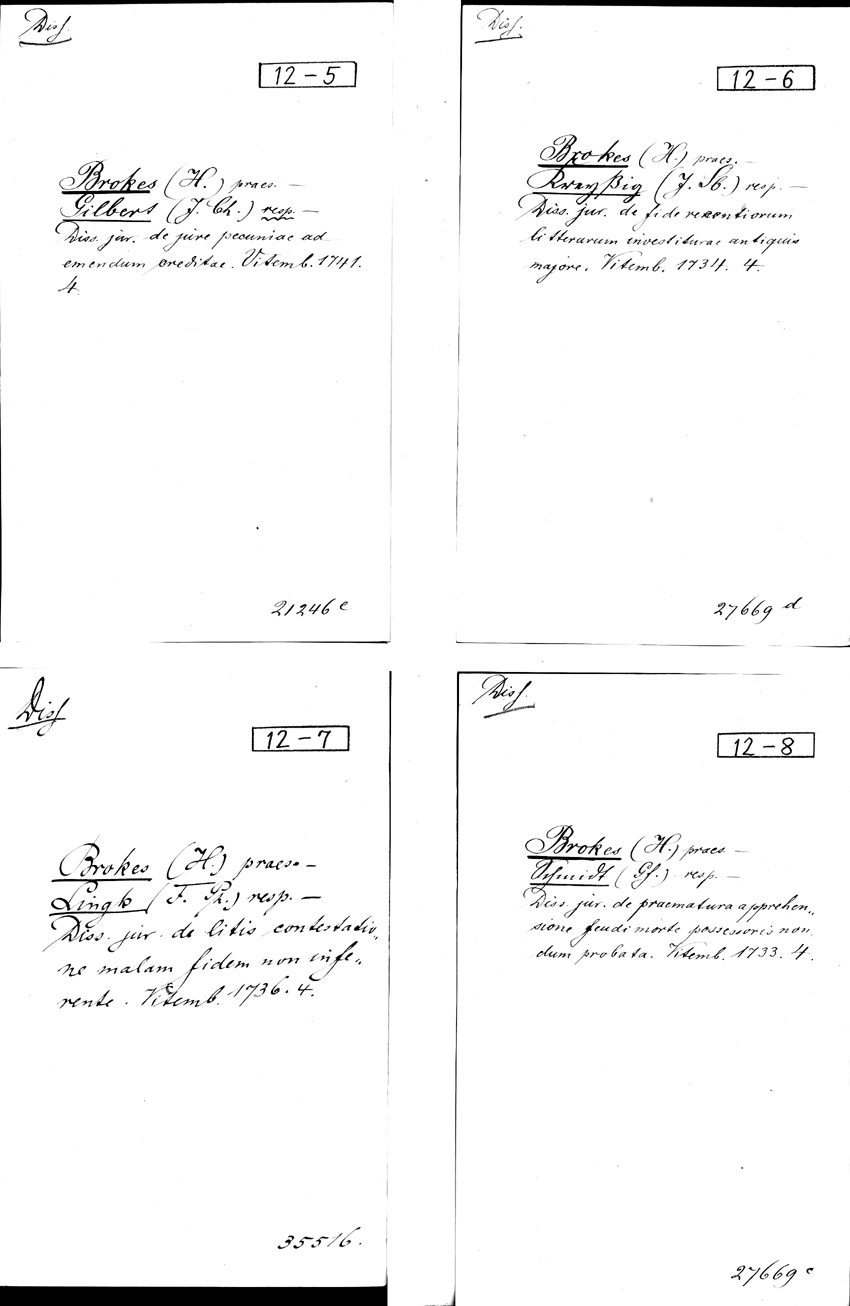 Diss.
12-5
Brokes (H.) praes. —
Gilbert (J. Ch.) resp. —
Diss. jur. de jure pecuniae ad
emendum creditae. Vitemb. 1741.
4.
21246 e
Diss.
12-6
Brokes (H.) praes. —
Kreyßig (J. Sb.) resp. —
Diss. jur. de fide recentiorum
litterarum investiturae antiquis
majore. Vitemb. 1734. 4.
27669 d
Diss
12-7
Brokes (H.) praes. —
Lingk (F. Ph.) resp. —
Diss. jur. de litis contestatio„
ne malam fidem non infe„
rente. Vitemb. 1736. 4.
35516.
Diss.
12-8
Brokes (H.) praes —
Schmidt (Gf.) resp. —
Diss. jur. de praematura apprehen„
sione feudi morte possessoris non
dum probata. Vitemb. 1733. 4.
27669 c